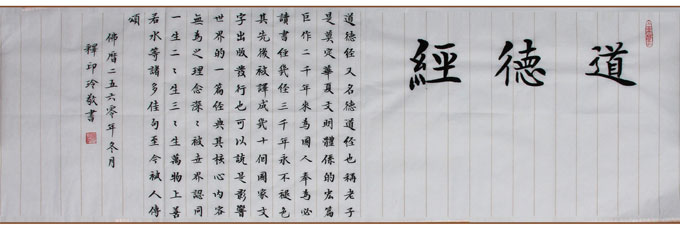 道德經
道德经又名德道经也稱老子
是奠定華夏文明體係的宏篇
巨作二千年來為國人奉為必
讀書经幾经三千年永不褪色
其先後被譯成幾十個國家文
字出版發行也可以說是影響
世界的一篇经典其核心內容
無為之理念深々被世界認同
一生二々生三々生萬物上善
若水等諸多佳句至今被人傳
頌
佛曆二五六零年冬月
釋印玲敬書